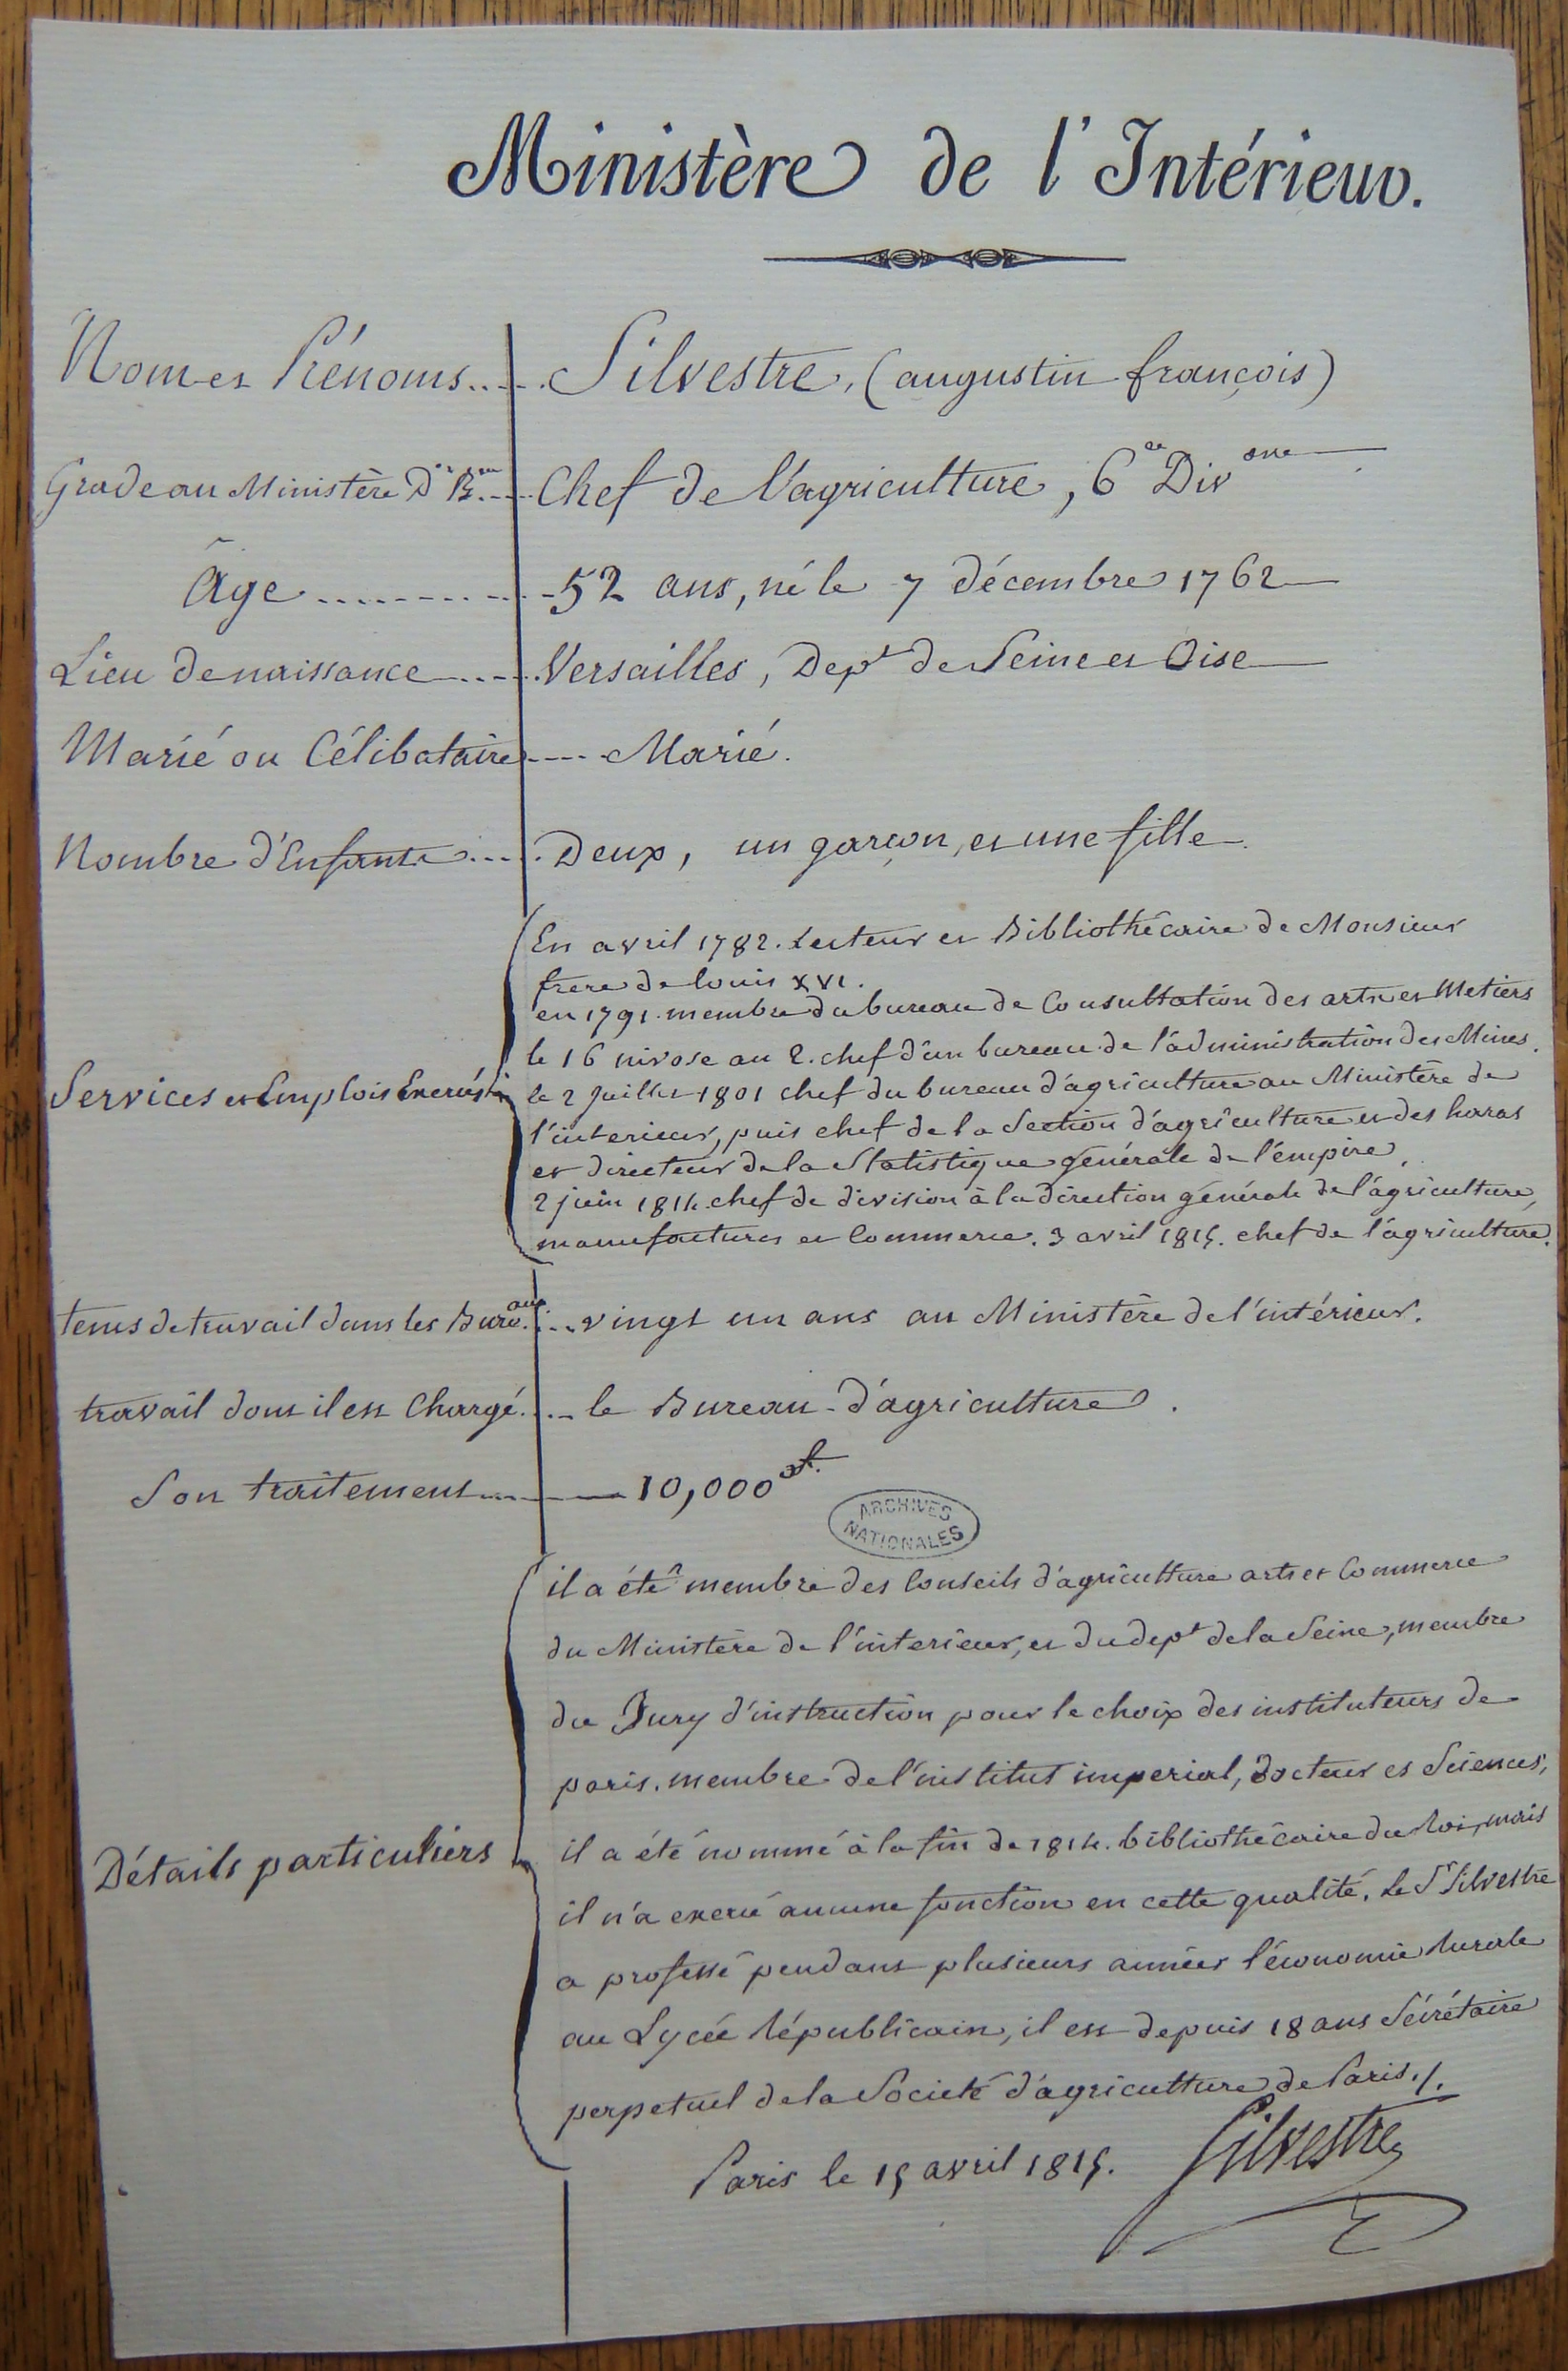 Ministère de l'Intérieur.
Nom et Prénoms..... Silvestre, (augustin françois)
Grade au Ministère Dr Bau..... Chef de l'agriculture, 6e Divone
Âge........... 52 ans, né le 7 décembre 1762
Lieu de naissance...... Versailles, Dept de Seine et Oise
Marié ou Célibataire..... Marié.
Nombre d'Enfants..... Deux, un garçon, et une fille.
En avril 1782. Lecteur et Bibliothécaire de Monsieur
frere de louis XVI.
en 1791. membre du bureau de Consultation des arts et Metiers
le 16 nivose an 2. chef d'un bureau de l'administration des Mines.
Services et Emplois Exercés
le 2 Juillet 1801 chef du bureau d'agriculture au Ministère de
l'interieur, puis chef de la Section d'agriculture et des haras
et directeur de la Statistique générale de l'empire,
2 juin 1814. chef de division à la direction générale de l'agriculture,
manufactures et Commerce. 3 avril 1815. chef de l'agriculture.
tems de travail dans les Bureaux... vingt un ans au Ministère de l'intérieur.
travail dont il est Chargé.... le Bureau d'agriculture.
Son traitement..... 10,000 f.
ARCHIVES
NATIONALES
il a été membre des Conseils d'agriculture arts et Commerce
du Ministère de l'interieur, et du dept de la Seine, membre
du Jury d'instruction pour le choix des instituteurs de
paris. membre de l'institut imperial, docteur es Sciences,
il a été nommé à la fin de 1814. bibliothécaire du Roi, mais
Détails particuliers
il n'a exercé aucune fonction en cette qualité. Le Sr Silvestre
a professé pendant plusieurs années l'économie Rurale
au Lycée Républicain, il est depuis 18 ans Sécrétaire
perpetuel de la Societé d'agriculture de Paris./.
Paris le 15 avril 1815. Silvestre